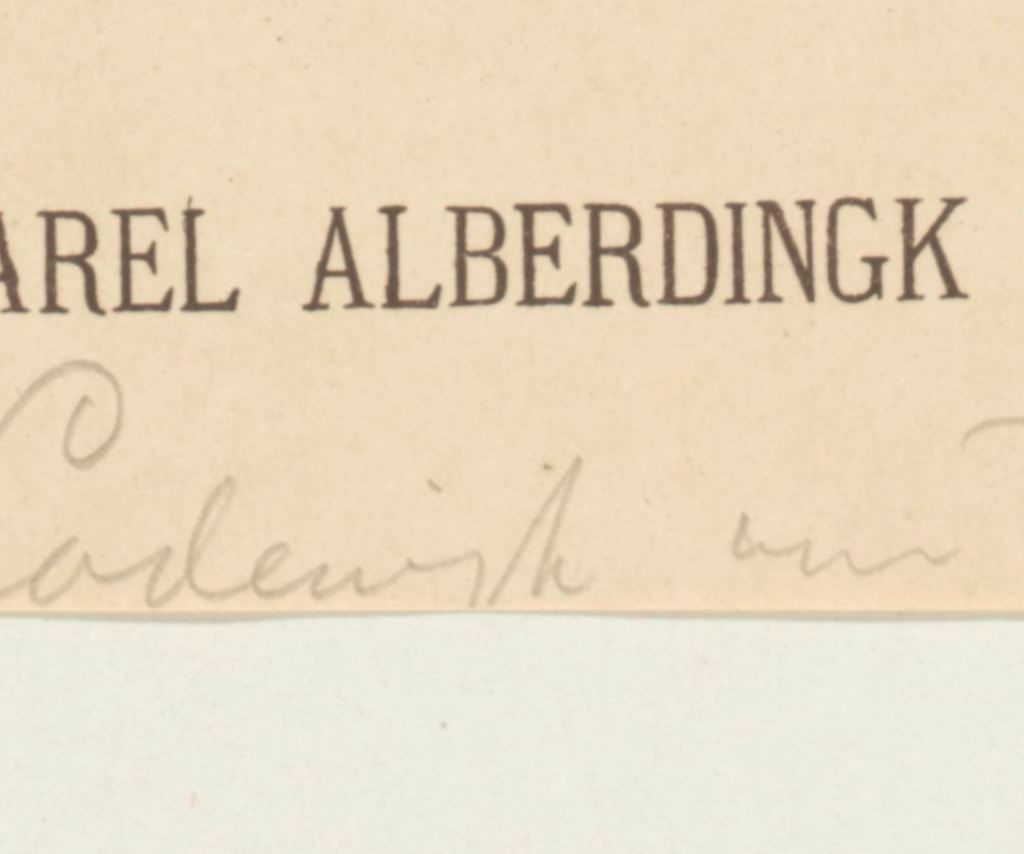 AREL ALBERDINGK
Lodewijk van